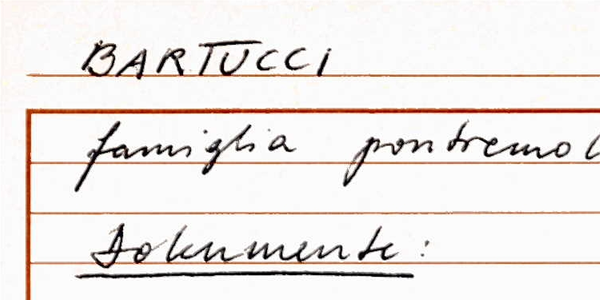 BARTUCCI
famiglia pontremol
Dokumente: